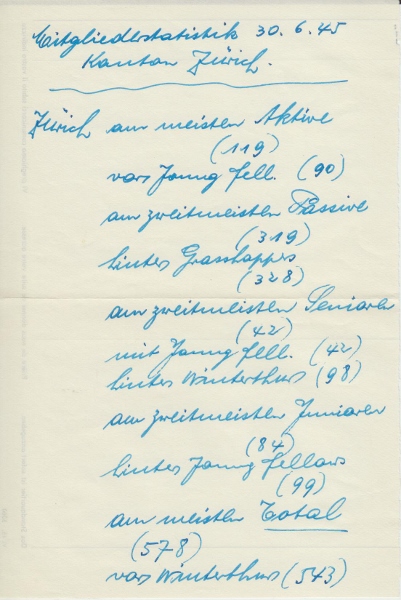 Mitgliederstatistik 30.6.45
Kanton Zürich.
Zürich am meisten Aktive
(119)
vor Joung fell. (90)
am zweitmeisten Passive
(319)
hinter Grasshopper
(328)
am zweitmeisten Senioren
(42)
mit Joung fell. (42)
hinter Winterthur (98)
am zweitmeisten Junioren
(84)
hinter Joung fellows
(99)
am meisten Total
(578)
vor Winterthur (543)